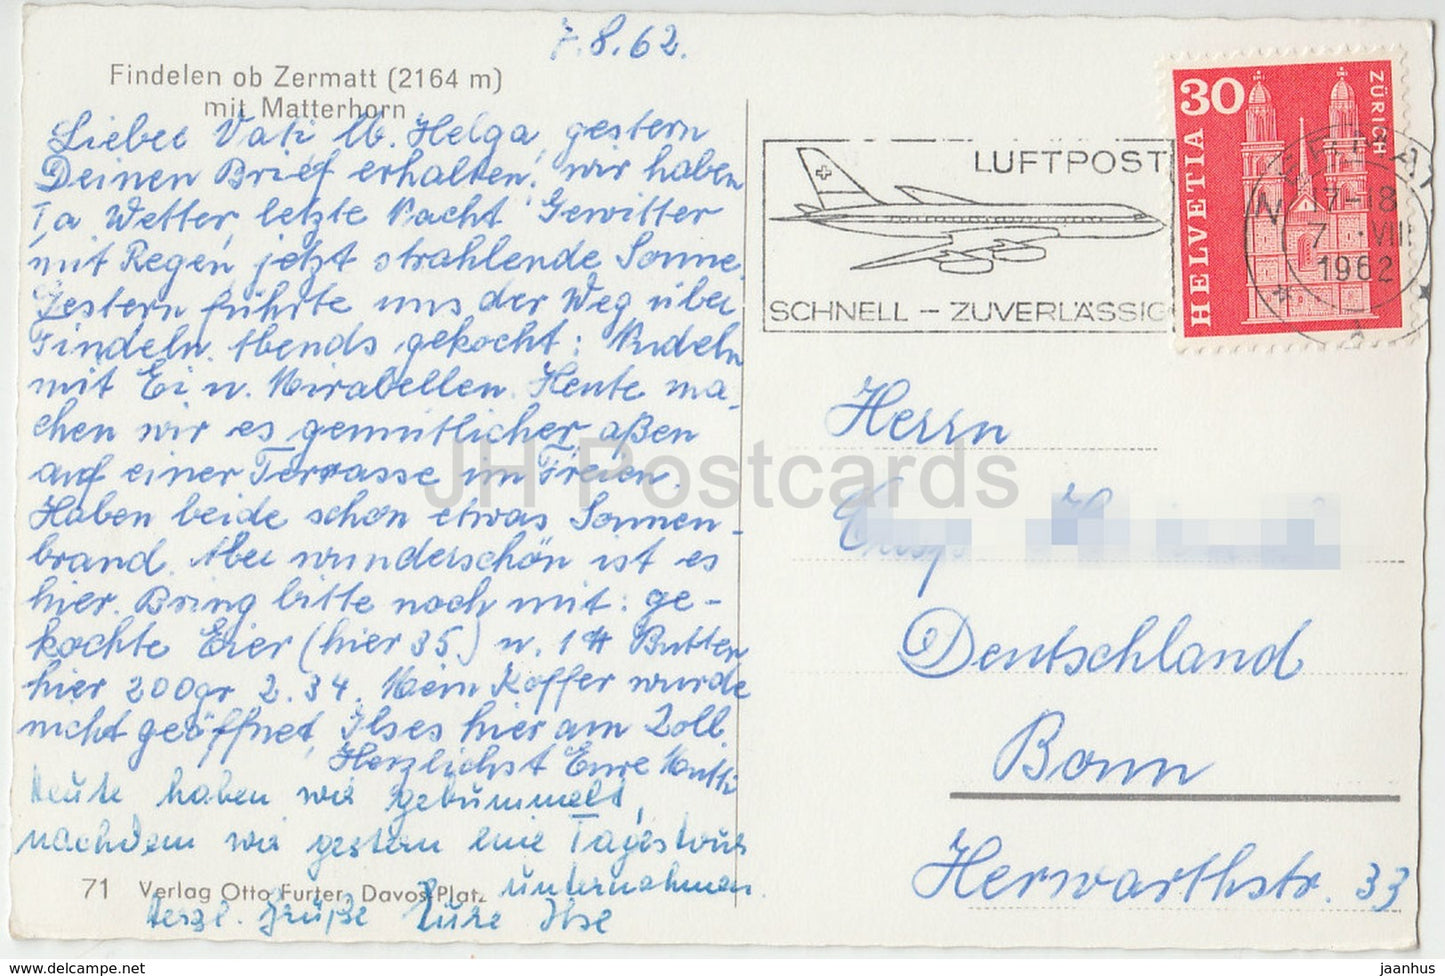 7.8.62.
Findelen ob Zermatt (2164 m)
mit Matterhorn
Lieber Vati lb. Helga, gestern
Deinen Brief erhalten, wir haben
Ia Wetter, letzte Nacht Gewitter
mit Regen, jetzt strahlende Sonne.
Gestern führte uns der Weg über
Findeln. Abends gekocht: Nudeln
mit Ei u. Mirabellen. Heute ma-
chen wir es gemütlicher, aßen
auf einer Terrasse im Freien.
Haben beide schon etwas Sonnen-
brand. Aber wunderschön ist es
hier. Bring bitte noch mit: ge-
kochte Eier (hier 35) u. 1 Butter
hier 200gr 2.34. Mein Koffer wurde
nicht geöffnet, Ilses hier am Zoll.
Herzlichst Eure Mutti
Heute haben wir gebummelt,
nachdem wir gestern eine Tagestour
unternahmen.
71 Verlag Otto Furter, Davos-Platz
Herzl. Grüße Eure Ilse
LUFTPOST
SCHNELL - ZUVERLÄSSIG
30
HELVETIA
ZÜRICH
ZERMATT
17-18
7.VIII
1962
Herrn
Deutschland
Bonn
Herwarthstr. 33
JH Postcards
delcampe.net
jaanhus